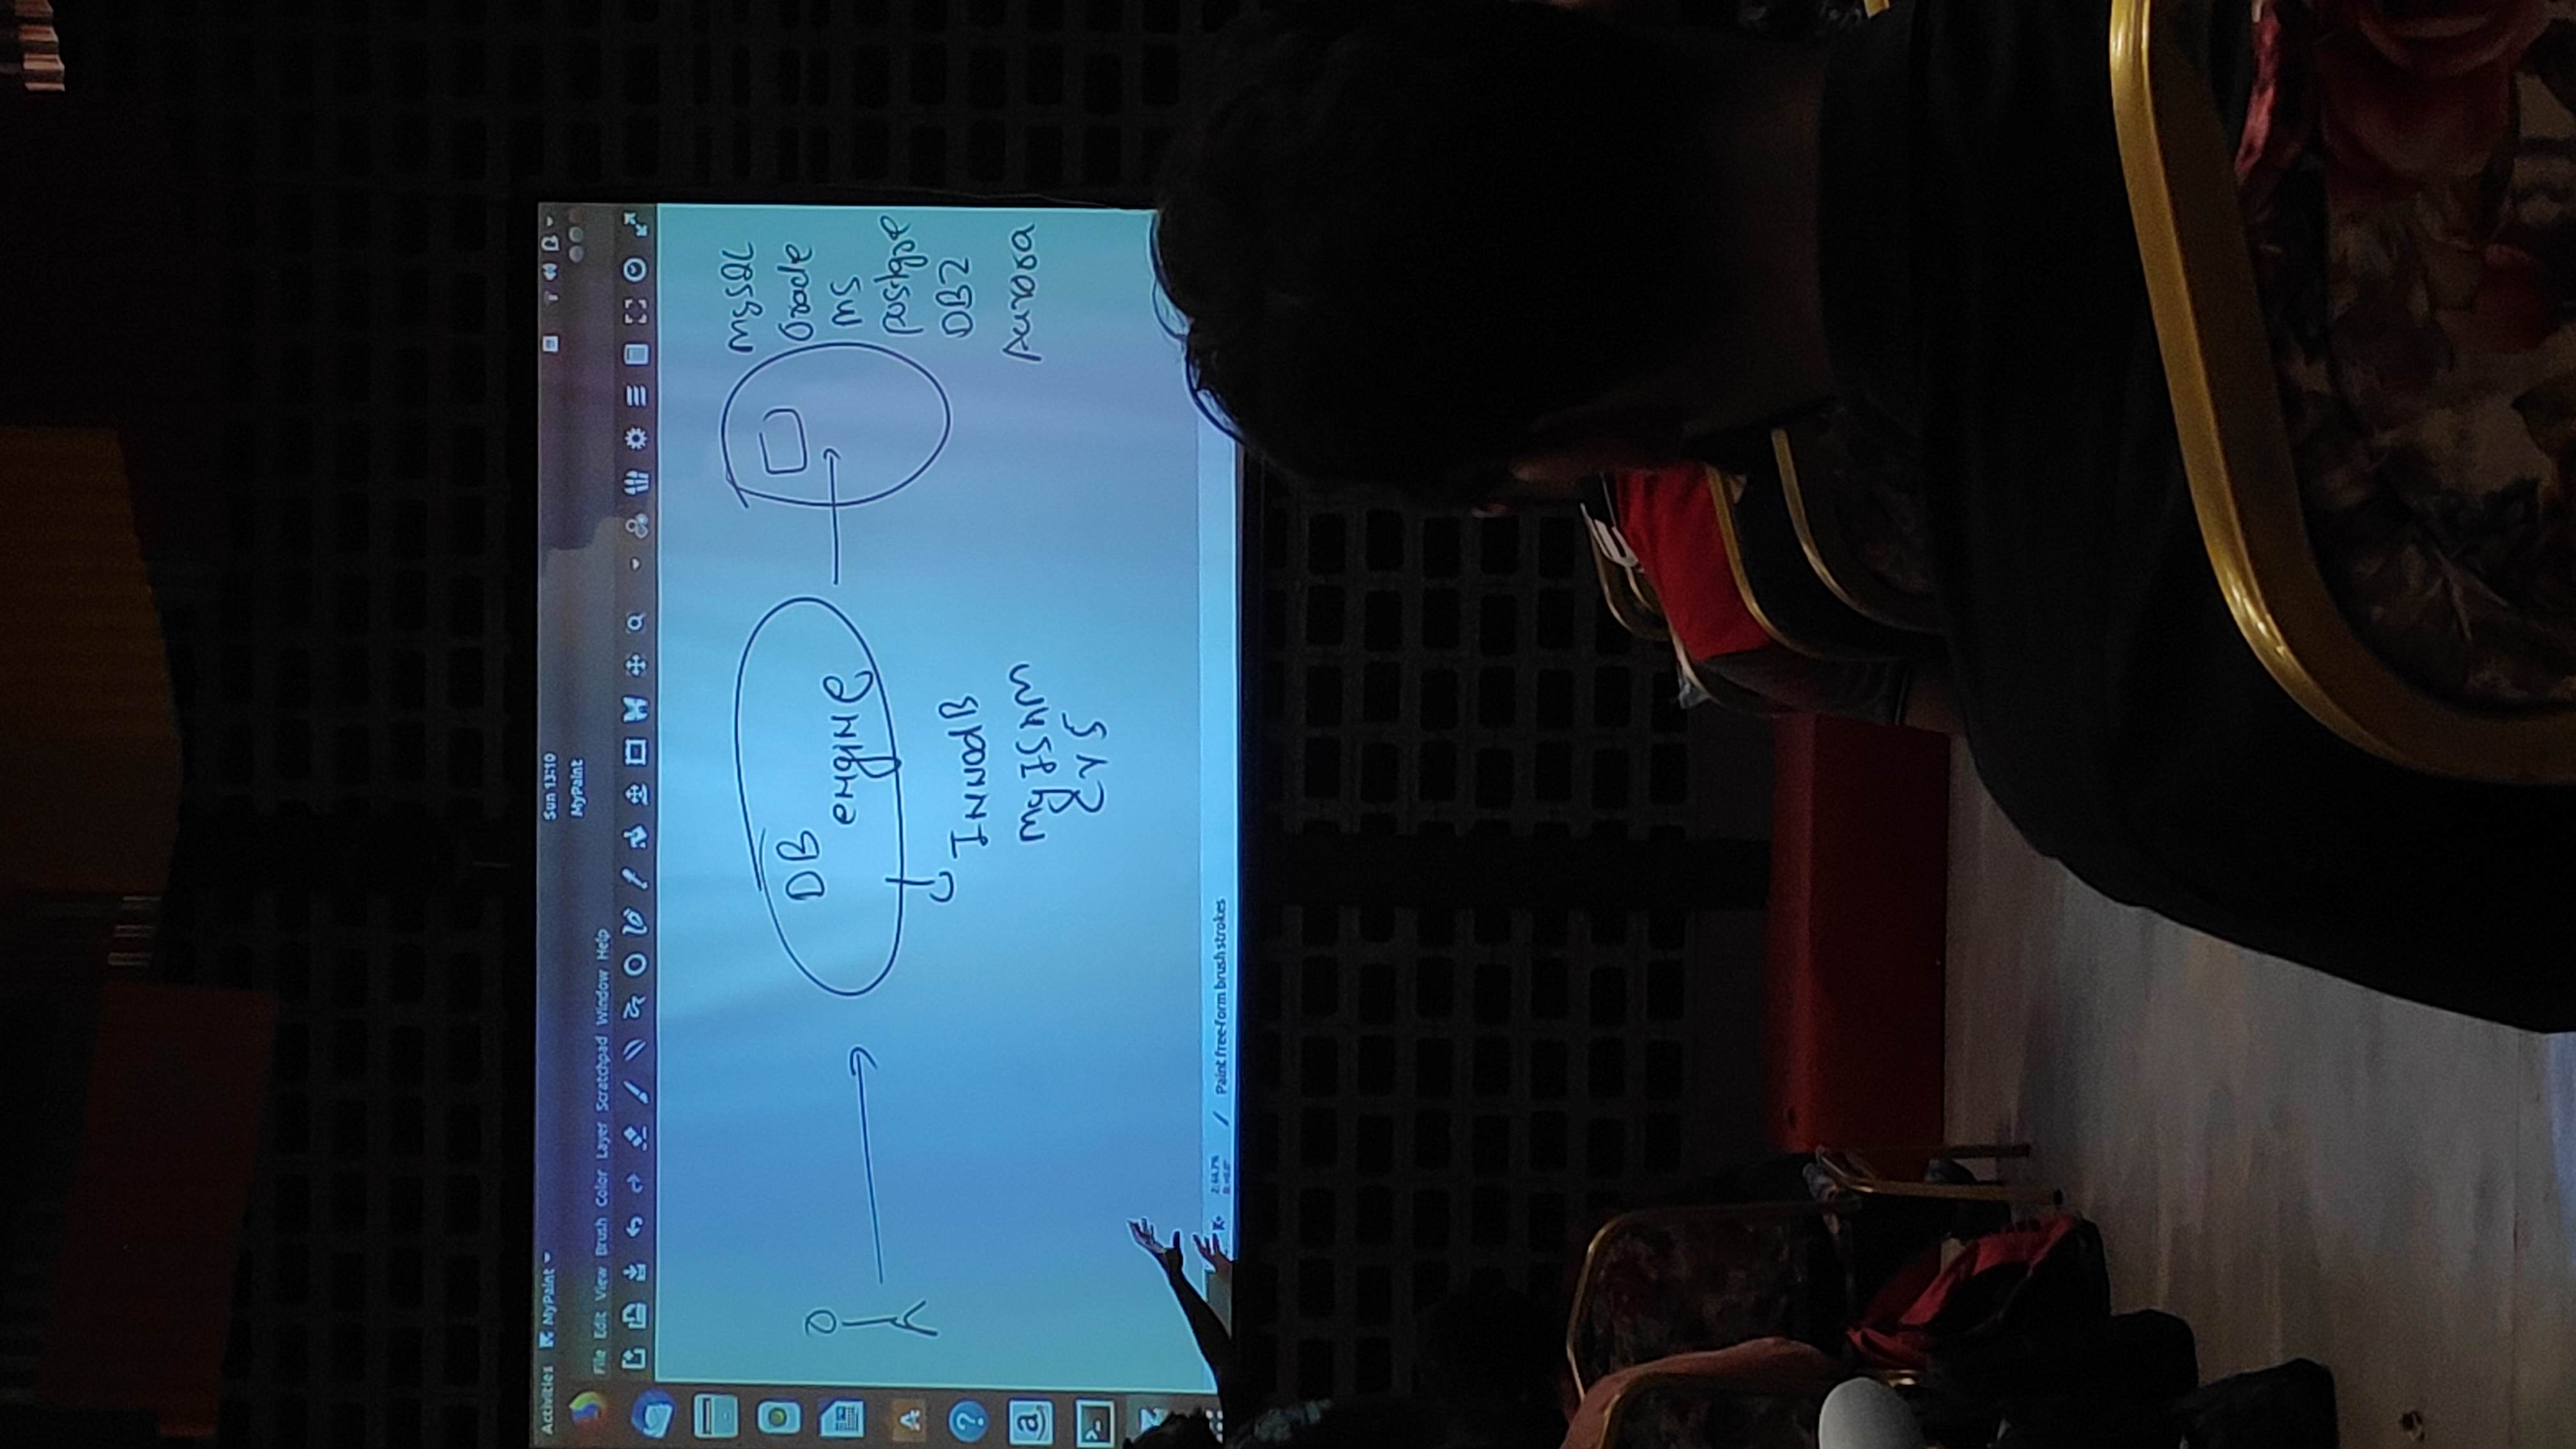 Activities MyPaint Sun 13:10
MyPaint
File Edit View Brush Color Layer Scratchpad Window Help
DB
engine
InnodB
MyISAM
CVS
MySQL
Oracle
MS
postgre
DB2
Aurora
Paint free-form brush strokes